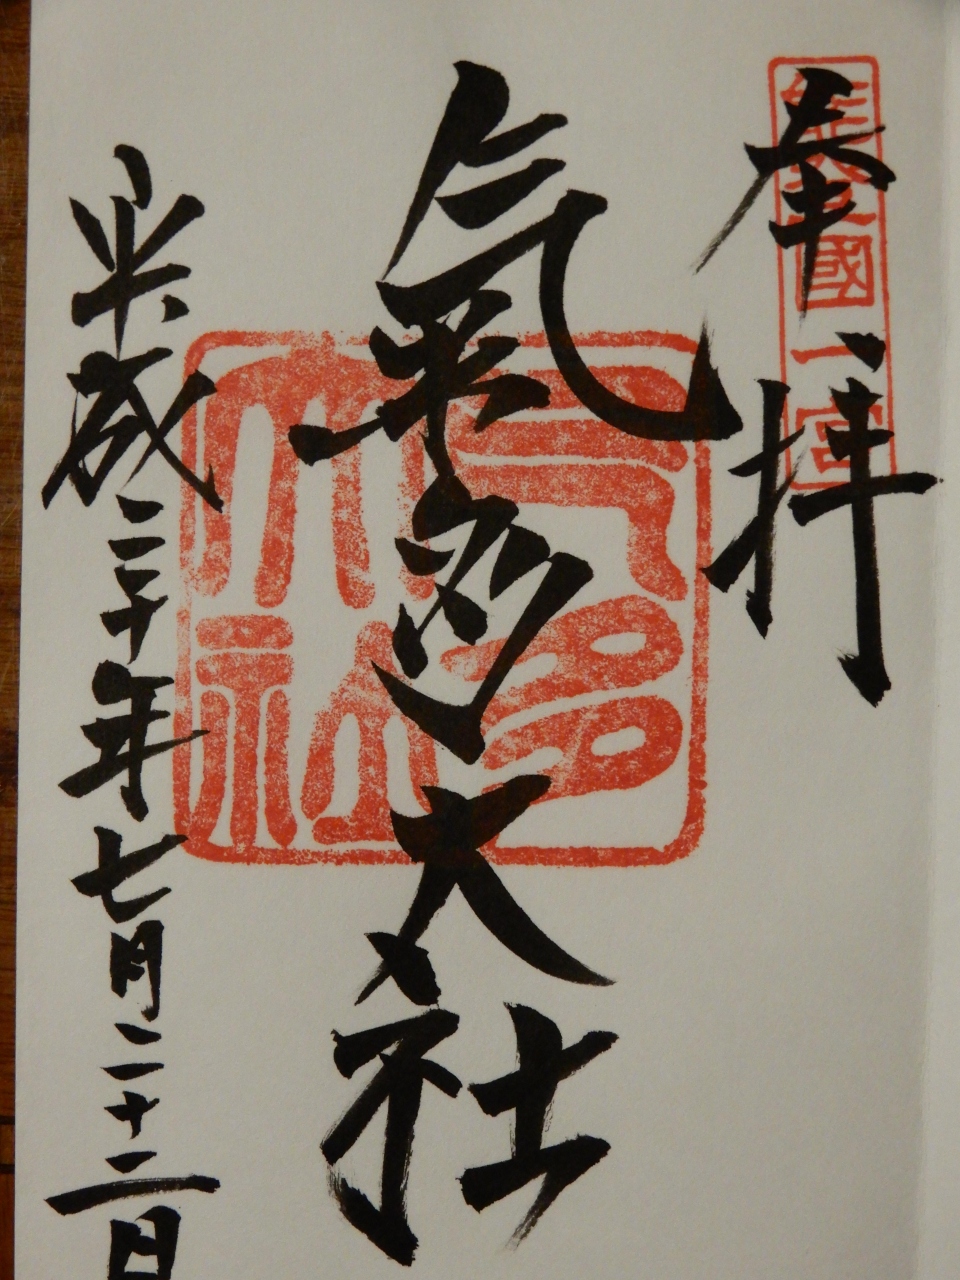 能登國一宮
奉拝
氣多大社
气多大社
平成二十年七月二十二日